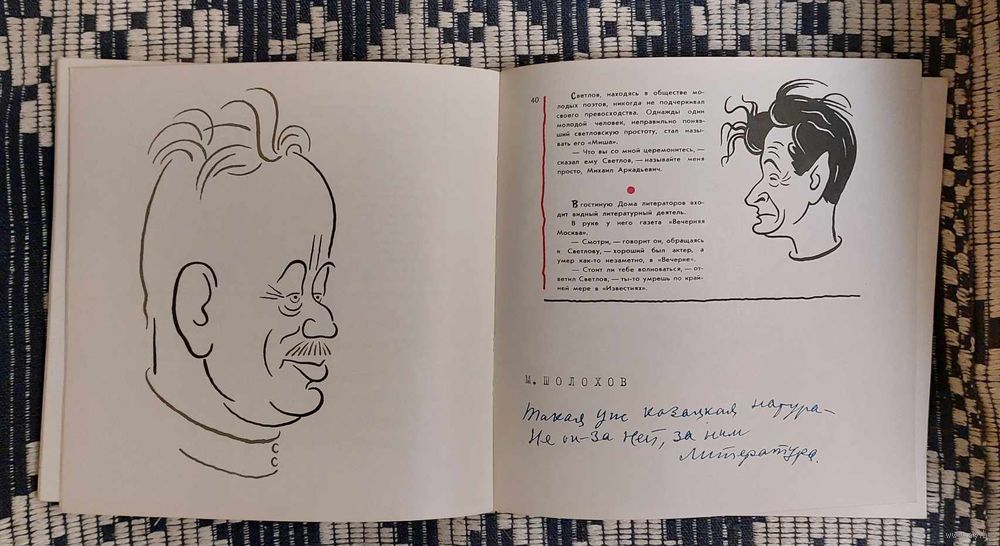 40
Светлов, находясь в обществе мо-
лодых поэтов, никогда не подчеркивал
своего превосходства. Однажды один
молодой человек, неправильно поняв-
ший светловскую простоту, стал назы-
вать его «Миша».
— Что вы со мной церемонитесь, —
сказал ему Светлов, — называйте меня
просто, Михаил Аркадьевич.
В гостиную Дома литераторов вхо-
дит видный литературный деятель.
В руке у него газета «Вечерняя
Москва».
— Смотри, — говорит он, обращаясь
к Светлову, — хороший был актер, а
умер как-то незаметно, в «Вечерке».
— Стоит ли тебе волноваться, — от-
ветил Светлов, — ты-то умрешь по край-
ней мере в «Известиях».
М. ШОЛОХОВ
Такая уж казацкая натура —
Не он за ней, за ним
литература.